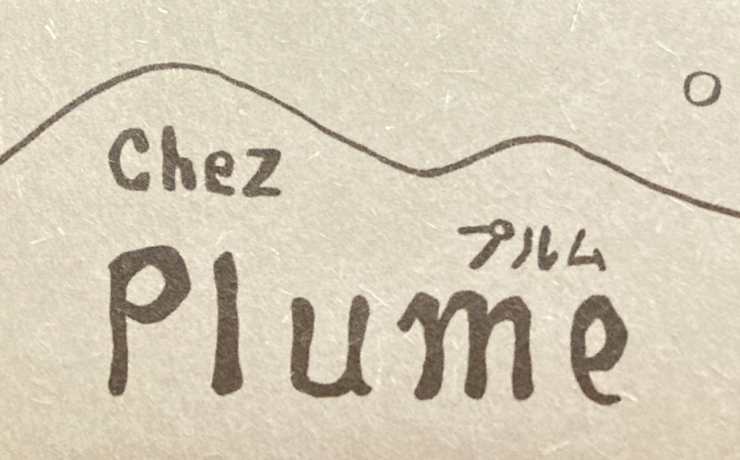 Chez
プルム
Plume